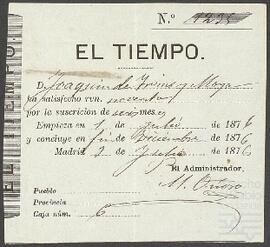 N.º 1235
EL TIEMPO.
D. Joaquin de Yrins y Moya
ha satisfecho rvn. noventa
por la suscricion de seis meses
Empieza en 1 Julio de 1876
y concluye en fin de Diciembre de 1876
Madrid 2 de Julio de 1876
El Administrador,
Pueblo
Provincia
Caja núm. 6
EL TIEMPO.